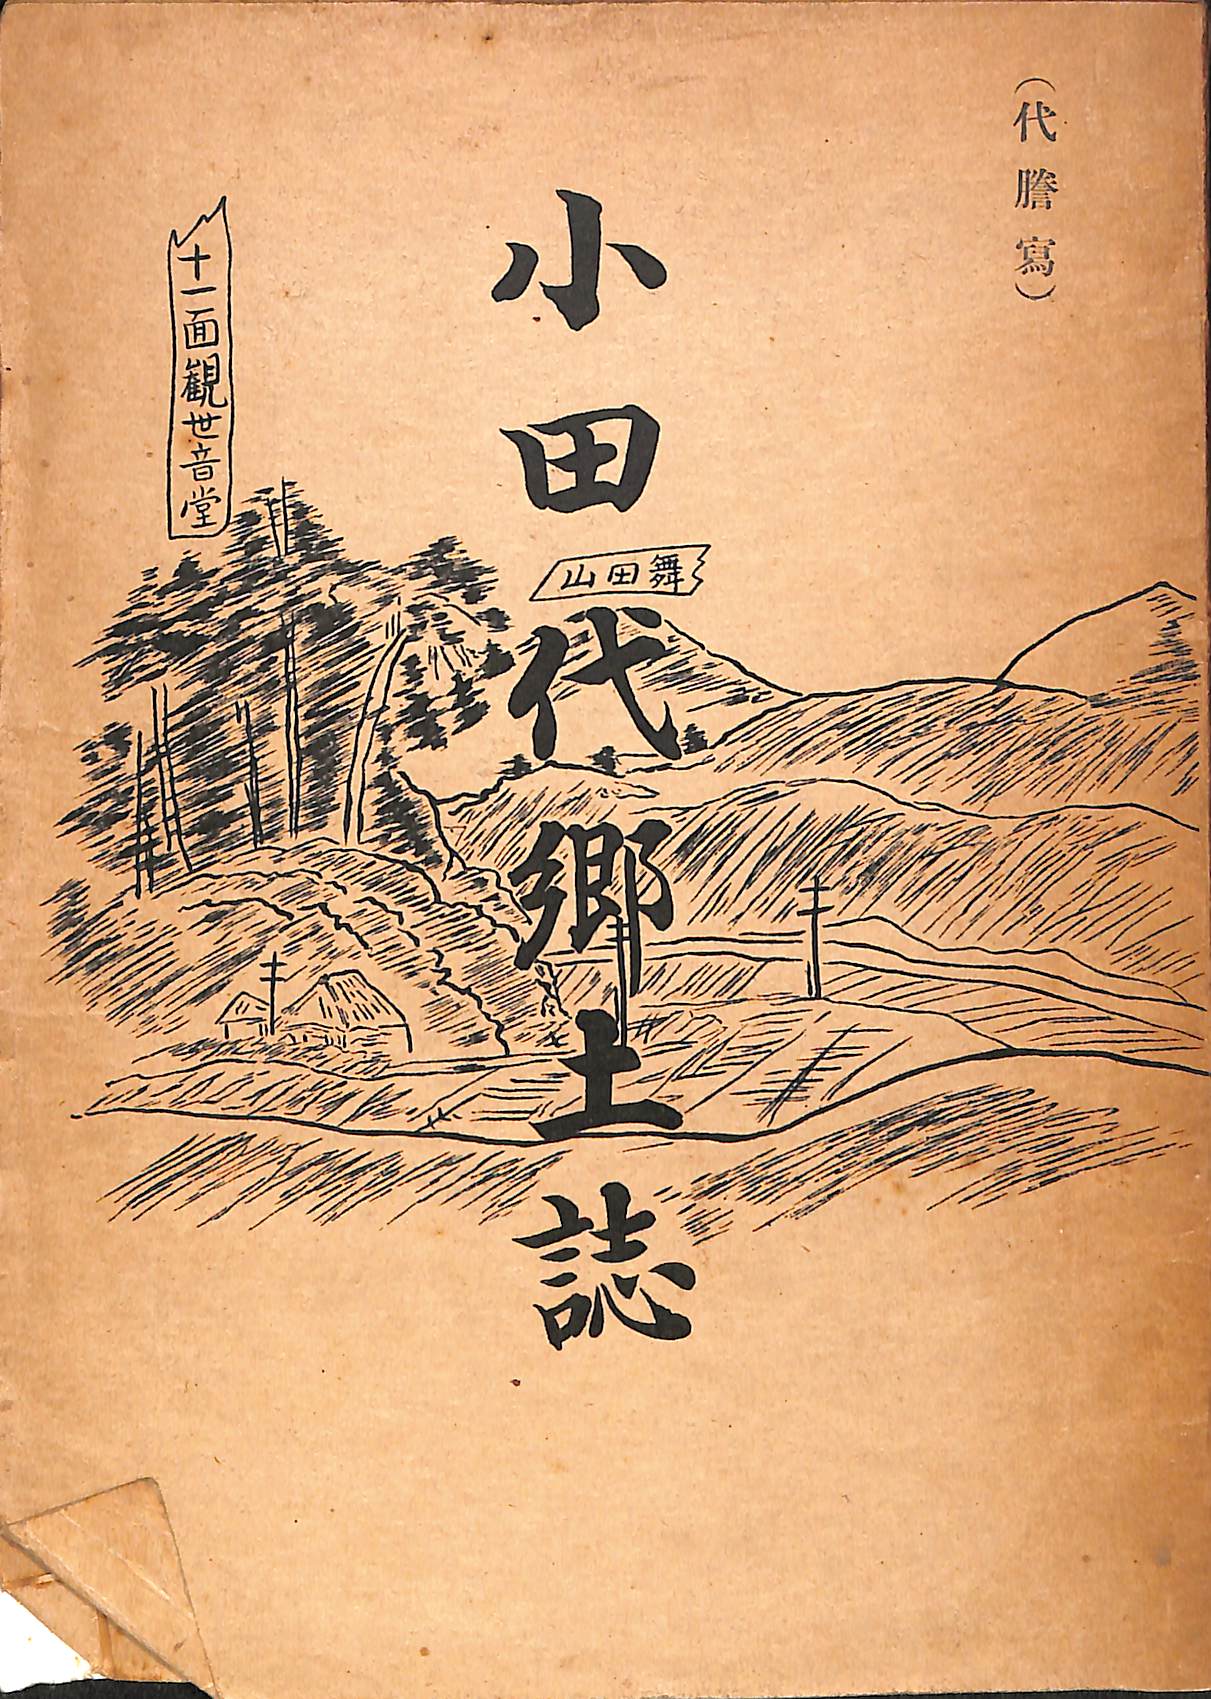 (代謄寫)
小田代郷土誌
舞田山
十一面観世音堂